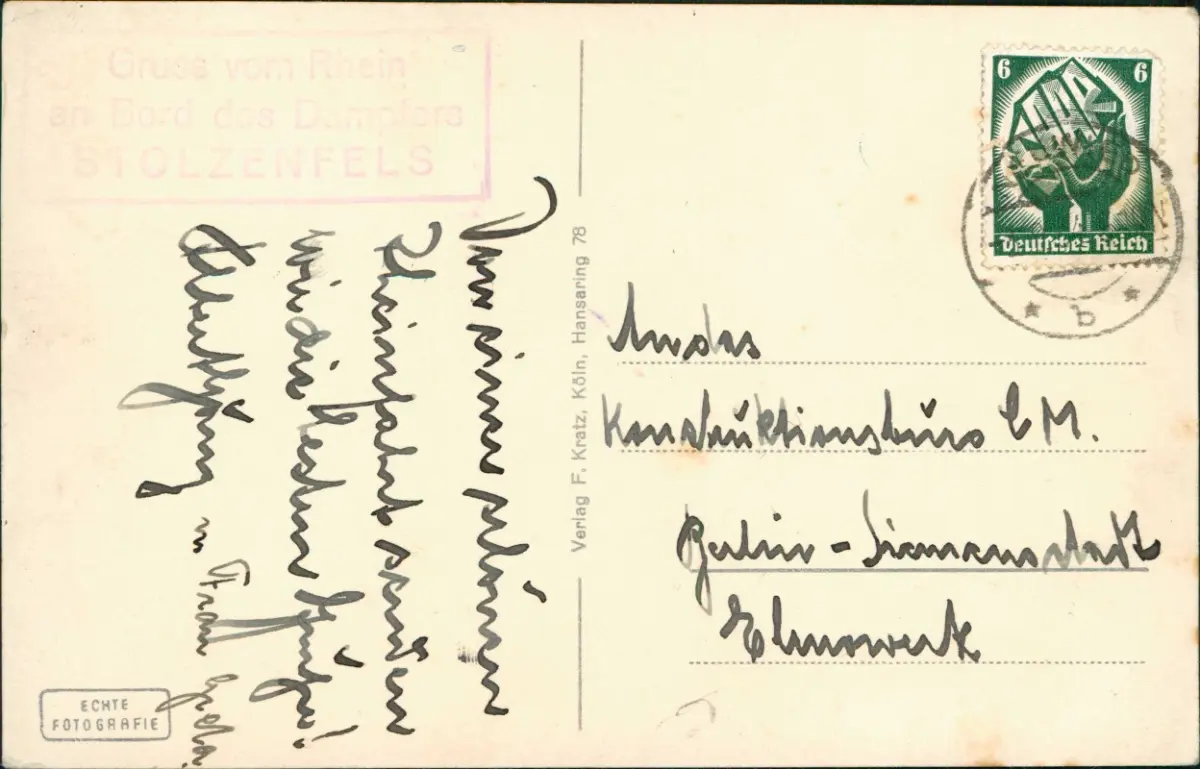 Gruss vom Rhein
an Bord des Dampfers
STOLZENFELS
Von einer schönen
Rheinfahrt senden
wir die besten Grüße!
u. Frau
ECHTE
FOTOGRAFIE
Verlag F. Kratz, Köln, Hansaring 78
6 6
SAAR
Deutsches Reich
b
An das
Konstruktionsbüro EM.
Berlin - Siemensstadt
Elmowerk